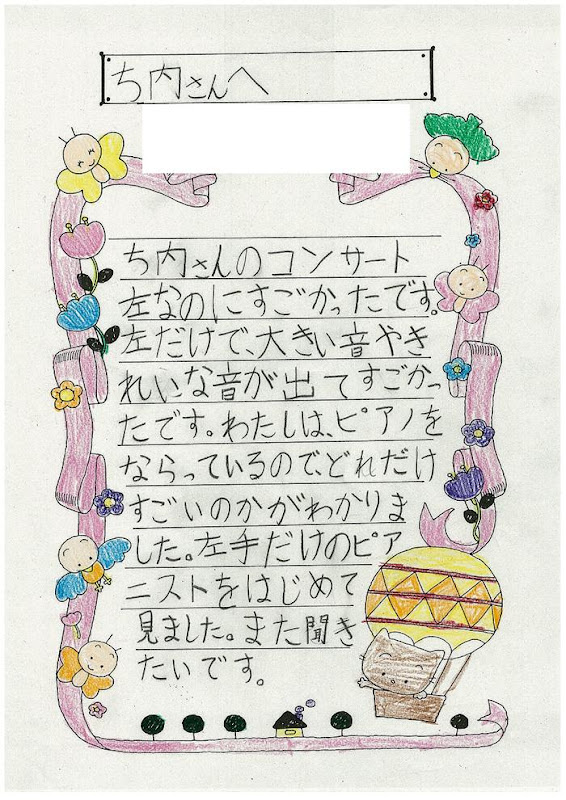 ち内さんへ
ち内さんのコンサート
左なのにすごかったです。
左だけで、大きい音やき
れいな音が出てすごかっ
たです。わたしは、ピアノを
ならっているので、どれだけ
すごいのかがわかりま
した。左手だけのピア
ニストをはじめて
見ました。また聞き
たいです。